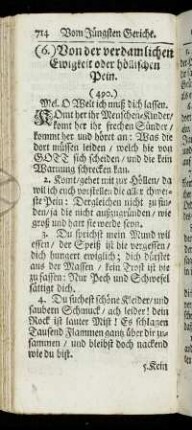 714 Vom Jüngsten Gericht.
(6.) Von der verdamlichen
Ewigkeit oder höllischen
Pein.
(490.)
Mel. O Welt ich muß dich lassen.
Komt her ihr Menschen-Kinder,
komt her ihr frechen Sünder,
kommet her und höret an: Was die
dort müssen leiden, welch hie von
GOTT sich scheiden, und die kein
Warnung schrecken kan.
2. Komt, gehet mit zur Höllen, da
will ich euch vorstellen die allerschwerste
Pein: Dergleichen nicht zu finden,
ja die nicht außzugründen, wie
groß und hart sie werde seyn.
3. Du sprichst mein Mund will
essen, der Speiß ist hie vergessen,
dich hungert ewiglich; dich dürstet
aus der Massen, kein Trost ist die
zu fassen: Nur Pech und Schwefel
sättigt dich.
4. Du suchest schöne Kleider, und
saubern Schmuck, ach leider! dein
Rock ist lauter Mist! Es schlagen
Tausend Flammen gantz über dir zusammen,
und bleibst doch nackend
wie du bist.
5. Kein